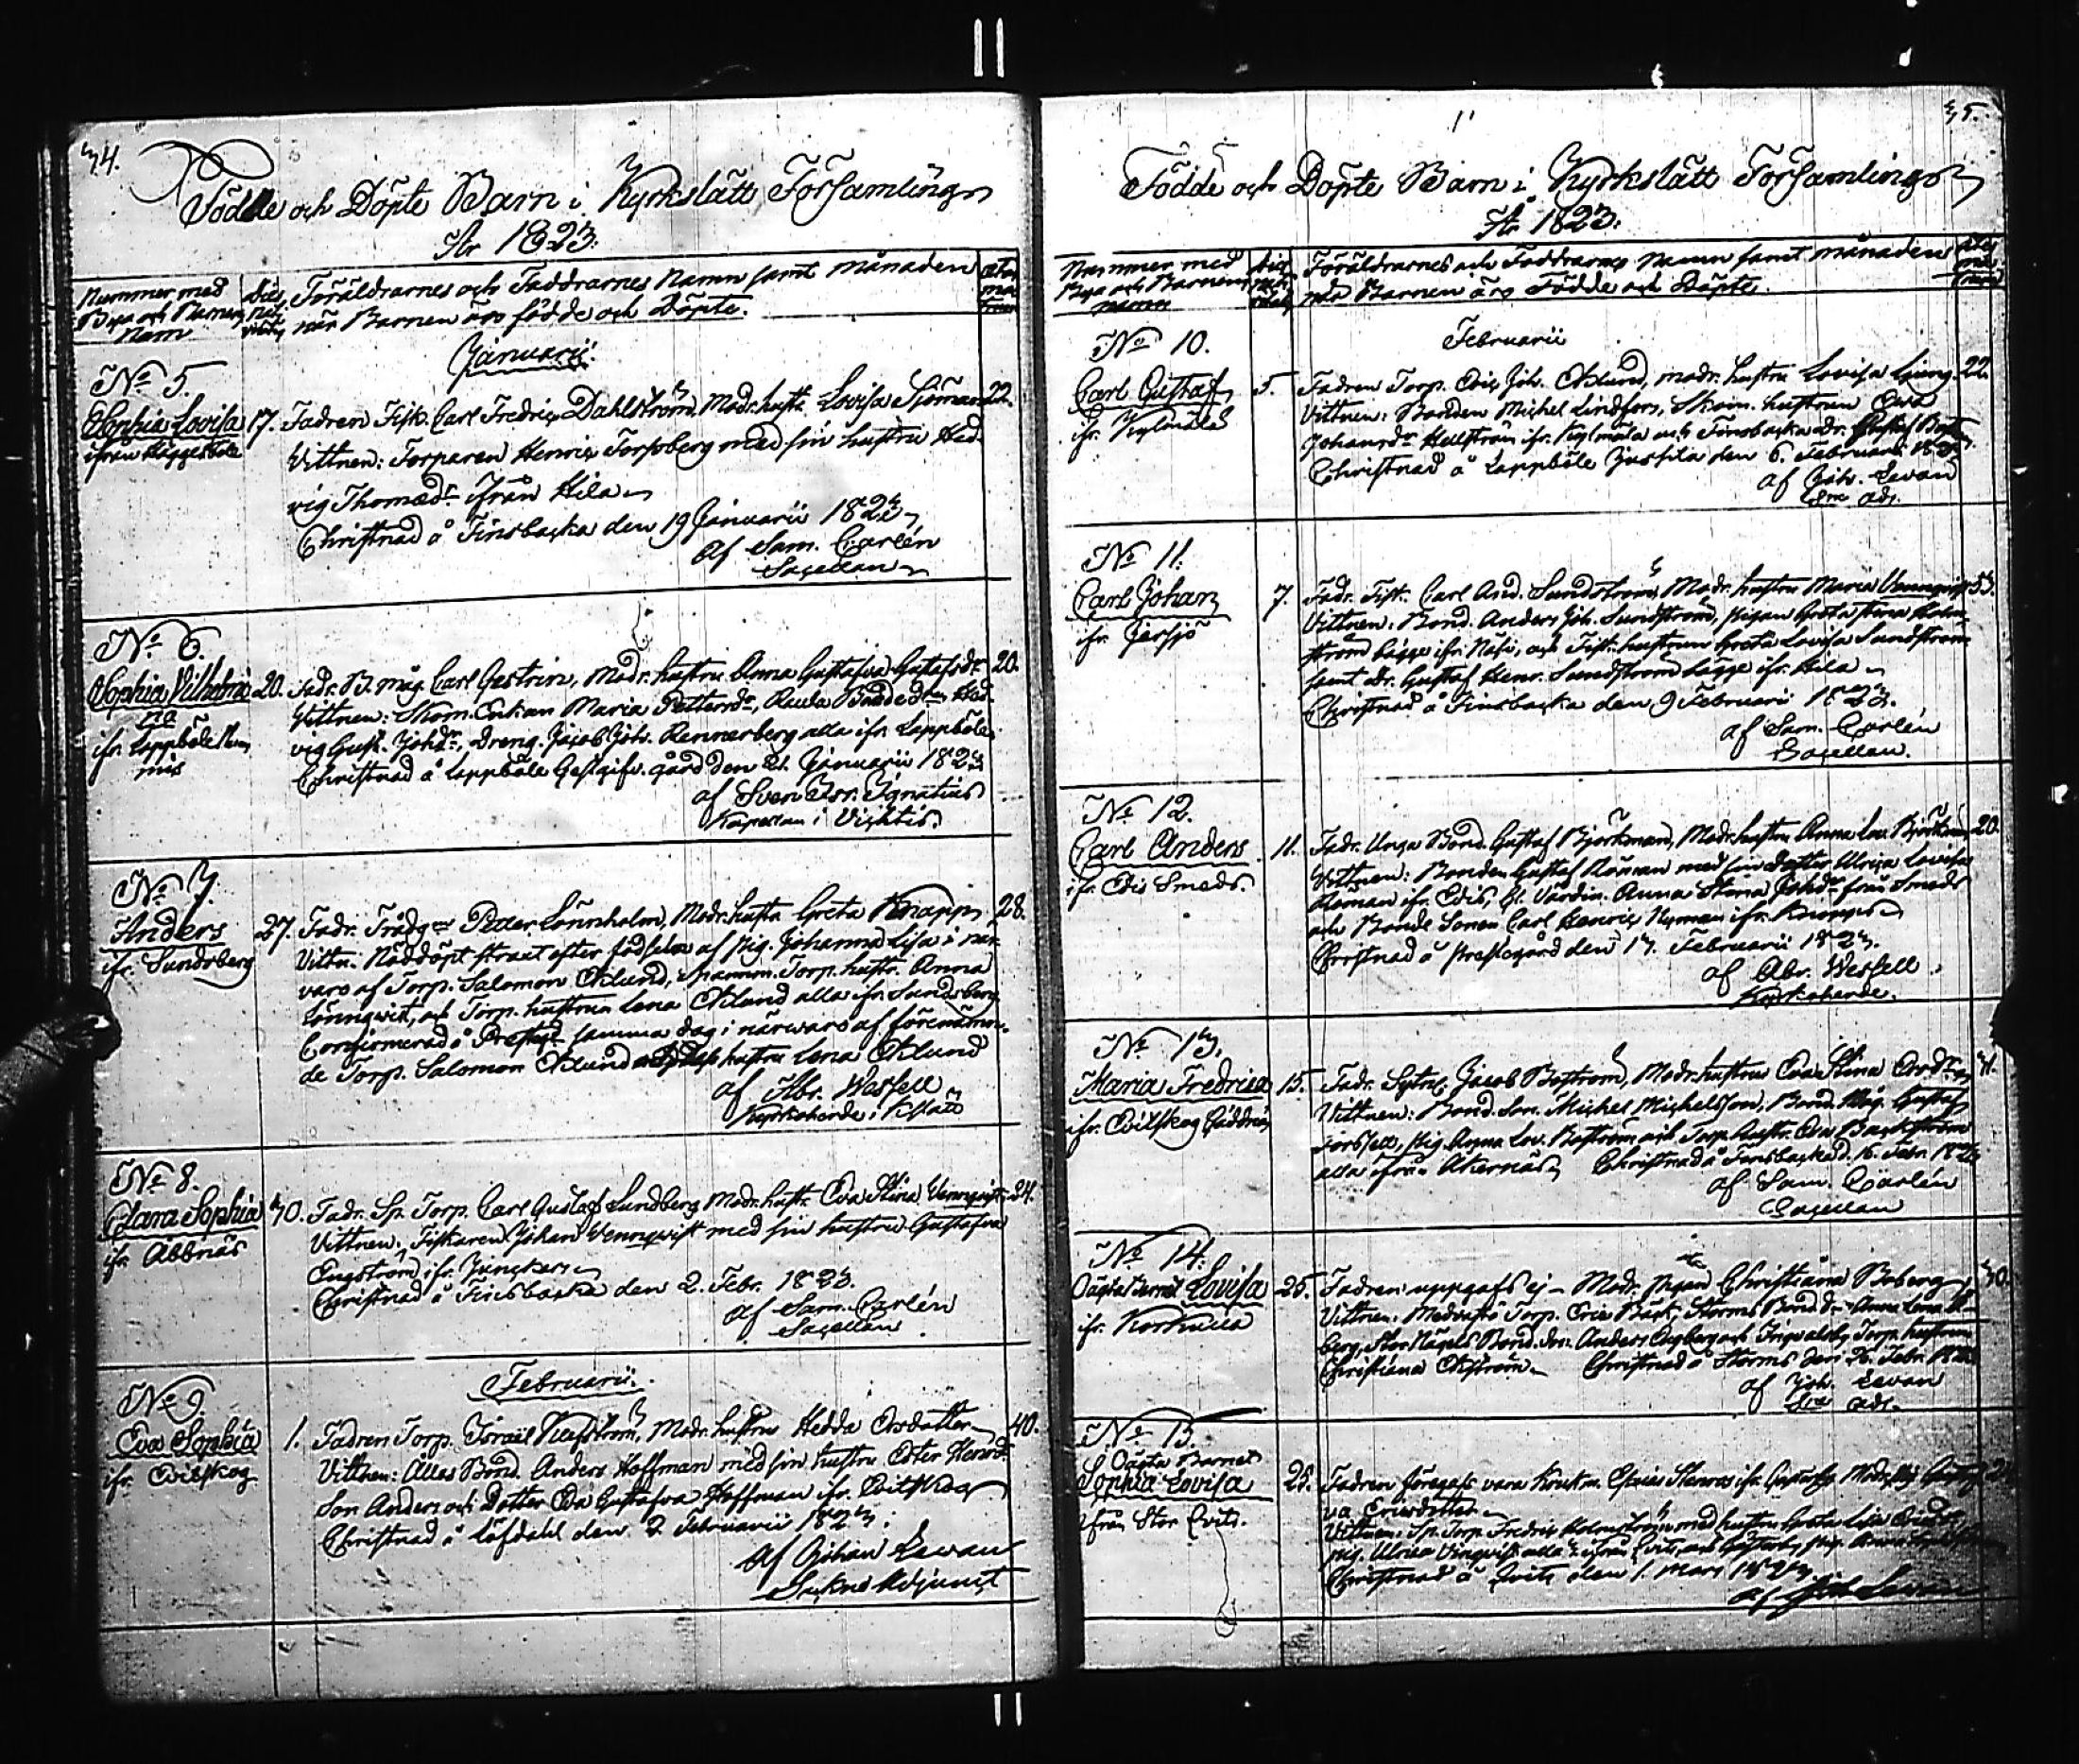 34.
Födde och Döpte Barn i Kyrkslätt Församling
År 1823.
Nummer med
Bya och Barnens
Namn
Dies
nati
vitatis
Föräldrarnes och Faddrarnes Namn samt månaden
när Barnen äro födde och Döpte.
Januarii.
No 5.
Sophia Lovisa
ifrån Häggesböle
17.
Fadren Fisk. Carl Fredric Dahlström, Modr. hustr. Lovisa Sjöman
22.
Vittnen: Torparen Henric Forsberg med sin hustru Hed-
vig Thomædr ifrån Hila
Christnad å Finsbacka den 19 Januarii 1823
af Sam. Carlén
Sacellan
No 6.
Sophia Vilhelmi
na
ifr. Lappböle
20.
Fadr. B. måg Carl Gestrin, Modr. hustru Anna Gustafva Gustafsdr
20.
Vittnen: Skom. Enkan Maria Pettersdr, Hed-
vig Gust. Johdr, Dreng. Jacob Joh. Rennerberg alla ifr. Lappböle
Christnad å Lappböle Gestgifv. gård den 21. Januarii 1823
af Sven Isr. Ignatius
Kapellan i Vichtis.
No 7.
Anders
ifr. Sundsberg
27.
Fadr. Trädg. Peter Lönnholm, Modr. hustr. Greta Knapp
28.
Vittn. Nöddöpt straxt efter födseln af Pig. Johanna Lisa i när-
varo af Torp. Salomon Eklund, Torp. hustr. Anna
Lönnqvist, och Torp. hustrun Lena Eklund alla ifr. Sundsberg
Confirmerad å Prestgd samma dag i närwaro af förenämn-
de Torp. Salomon Eklund hustru Lena Eklund
af Abr. Wessell
Kyrkoherde i Kslätt
No 8.
Clara Sophia
ifr. Åbbnäs
30.
Fadr. Sp. Torp. Carl Gustaf Lundberg Modr. hustr. Eva Stina Vennqvist
24.
Vittnen: Fiskaren Johan Vennqvist med sin hustru Gustafva
Engström ifr. Junckers
Christnad å Finsbacka den 2. Febr. 1823.
af Sam. Carlén
Sacellan
Februarii.
No 9.
Eva Sophia
ifr. Evitskog
1.
Fadren Torp. Israël, Modr. hustru Hedda Ersdotter
40.
Vittnen: Ållas Bond. Anders Hoffman med sin hustru Ester Henrdr
Son Anders och Dotter Eva Gustafva Hoffman ifr. Evitskog
Christnad å Löfdahl den 2. Februarii 1823.
af Johan Levan
Adjunct
35.
Födde och Döpte Barn i Kyrkslätt Församling
År 1823.
Nummer med
Bya och Barnens
namn
Föräldrarnes och Faddrarnes Namn samt månaden
när Barnen äro Födde och Döpte.
Februarii
No 10.
Carl Gustaf
ifr. Kylmälä
5.
Fadren Torp. Eric Joh. Eklund, modr. hustru Lovisa Ljung
22.
Vittnen: Bonden Michel Lindfors, Skom. hustrun Eva
Johansdr Hellström ifr. Kylmälä och Finsbacka dr. Gustaf
Christnad å Lappböle Justila den 6. Februari 1823.
af Joh. Levan
adj.
No 11.
Carl Johan
ifr. Jersjö
7.
Fadr. Fisk. Carl And. Sundström, Modr. hustru Maria Vennqvist
33.
Vittnen: Bond. Anders Joh. Sundström, Pigan Greta Stina Holm-
ström bägge ifr. Näse, och Fisk. hustrun Greta Lovisa Sundström
samt dr. Gustaf Henr. Sundström bägge ifr. Hila
Christnad å Finsbacka den 9 Februarii 1823.
af Sam. Carlén
Sacellan.
No 12.
Carl Anders
ifr. Edis Smeds.
11.
Fadr. Unga Bond. Gustaf Björkman, Modr. hustru Anna Lov. Björkman
20.
Vittnen: Bonden Gustaf Röman med sin dotter Ulrica Lovisa
Röman ifr. Edis, Gl. Värdin. Anna Stina Johdr från Smeds
och Bonde Sonen Carl Henric Nyman ifr. Knopps
Christnad å Prestegård den 13. Februarii 1823.
af Abr. Wessell
Kyrkoherde.
No 13.
Maria Fredrica
ifr. Evitskog
15.
Fadr. Sytn. Jacob Boström, Modr. hustru Eva Stina Ersdr
31.
Vittnen: Bond. Son. Michel Michelsson, Bond. Måg. Gustaf
Forssell, Pig. Anna Lov. Boström och Torp. hustr. Eva Backström
alla ifrån Åkernäs Christnad å Finsbacka d. 16. Febr. 1823
af Sam. Carlén
Sacellan
No 14.
Oägta Barnet Lovisa
ifr. Korkulla
25.
Fadren uppgafs ej - Modr. Pigan Christiana Boberg
30.
Vittnen: Torp. Eric Bärk, Storms Bond. Dr. Anna Lena
berg, Stor Nägels Bond. Son. Anders Engberg och Ingvalsby Torp. hustrun
Christiana Ekström Christnad å Storms den 26. Febr. 1823
af Joh. Levan
adj.
No 15.
Oägta Barnet
Sophia Lovisa
från Stor Qvits.
28.
Fadren föregafs vara
va Ericsdotter
Vittnen: Sp. Torp. Fredric Holmström med hustru Greta Lisa
Pig. Ulrica Vinqvist alla ifrån Qvits
Christnad å Qvits den 1. Mars 1823
af Joh. Levan